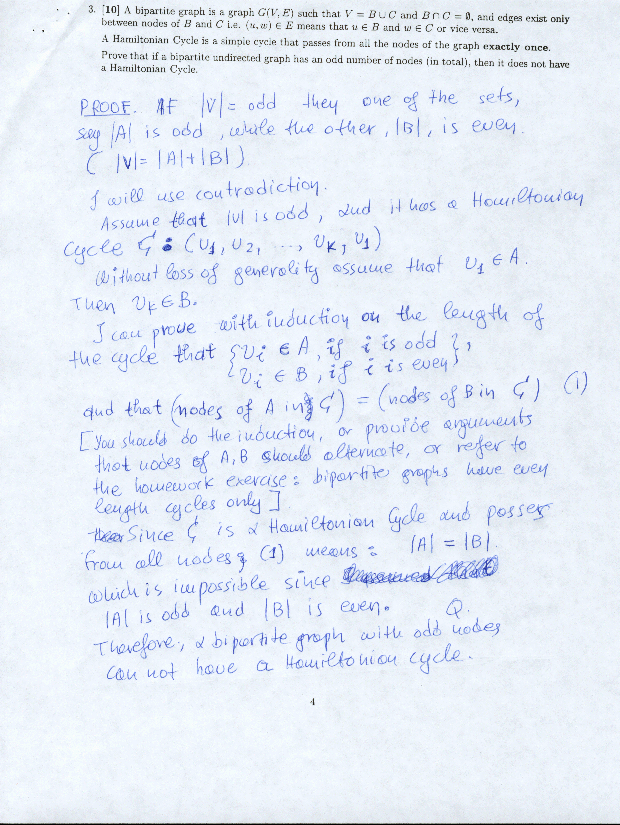 3. [10] A bipartite graph is a graph G(V, E) such that V = B ∪ C and B ∩ C = ∅, and edges exist only
between nodes of B and C i.e. (u, w) ∈ E means that u ∈ B and w ∈ C or vice versa.
A Hamiltonian Cycle is a simple cycle that passes from all the nodes of the graph exactly once.
Prove that if a bipartite undirected graph has an odd number of nodes (in total), then it does not have
a Hamiltonian Cycle.
PROOF. If |V| = odd they one of the sets,
say |A| is odd, while the other, |B|, is even.
( |V| = |A|+|B| )
I will use contradiction.
Assume that |V| is odd, and it has a Hamiltonian
Cycle C: (v1, v2, ..., vk, v1)
Without loss of generality assume that v1 ∈ A.
Then vk ∈ B.
I can prove with induction on the length of
the cycle that { vi ∈ A, if i is odd },
{ vi ∈ B, if i is even }
and that (nodes of A in C) = (nodes of B in C) (1)
[You should do the induction, or provide arguments
that nodes of A, B should alternate, or refer to
the homework exercise: bipartite graphs have even
length cycles only]
Since C is a Hamiltonian Cycle and passes
from all nodes, (1) means: |A| = |B|.
which is impossible since
|A| is odd and |B| is even. Q.
Therefore, a bipartite graph with odd nodes
can not have a Hamiltonian cycle.
4